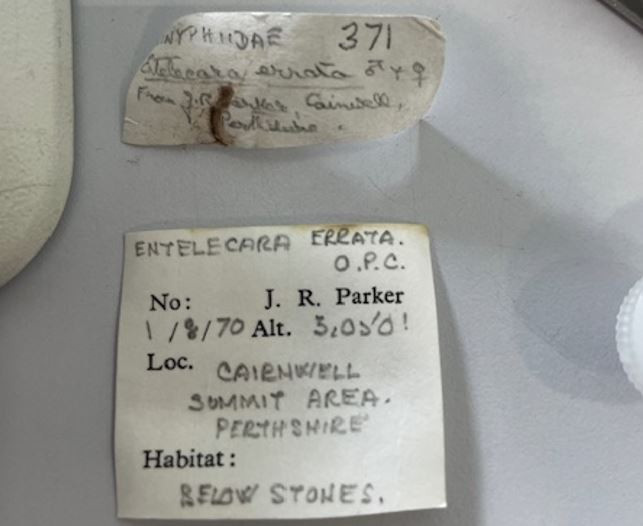 NYPHIIDAE 371
Entelecara errata ♂ + ♀
From J.R. Parker, Cairnwell,
Perthshire.
ENTELECARA ERRATA.
O.P.C.
No: J. R. Parker
1/8/70 Alt. 3,050'!
Loc. CAIRNWELL
SUMMIT AREA.
PERTHSHIRE
Habitat:
BELOW STONES.